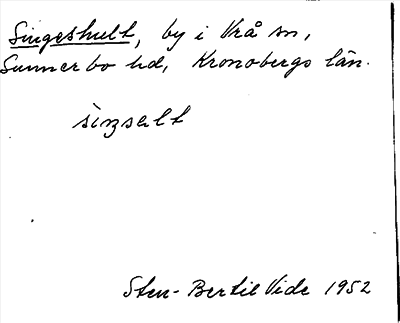 Singeshult, by i Vrå sn,
Sunnerbo hd, Kronobergs län.
sìŋsalt
Sten-Bertil Vide 1952